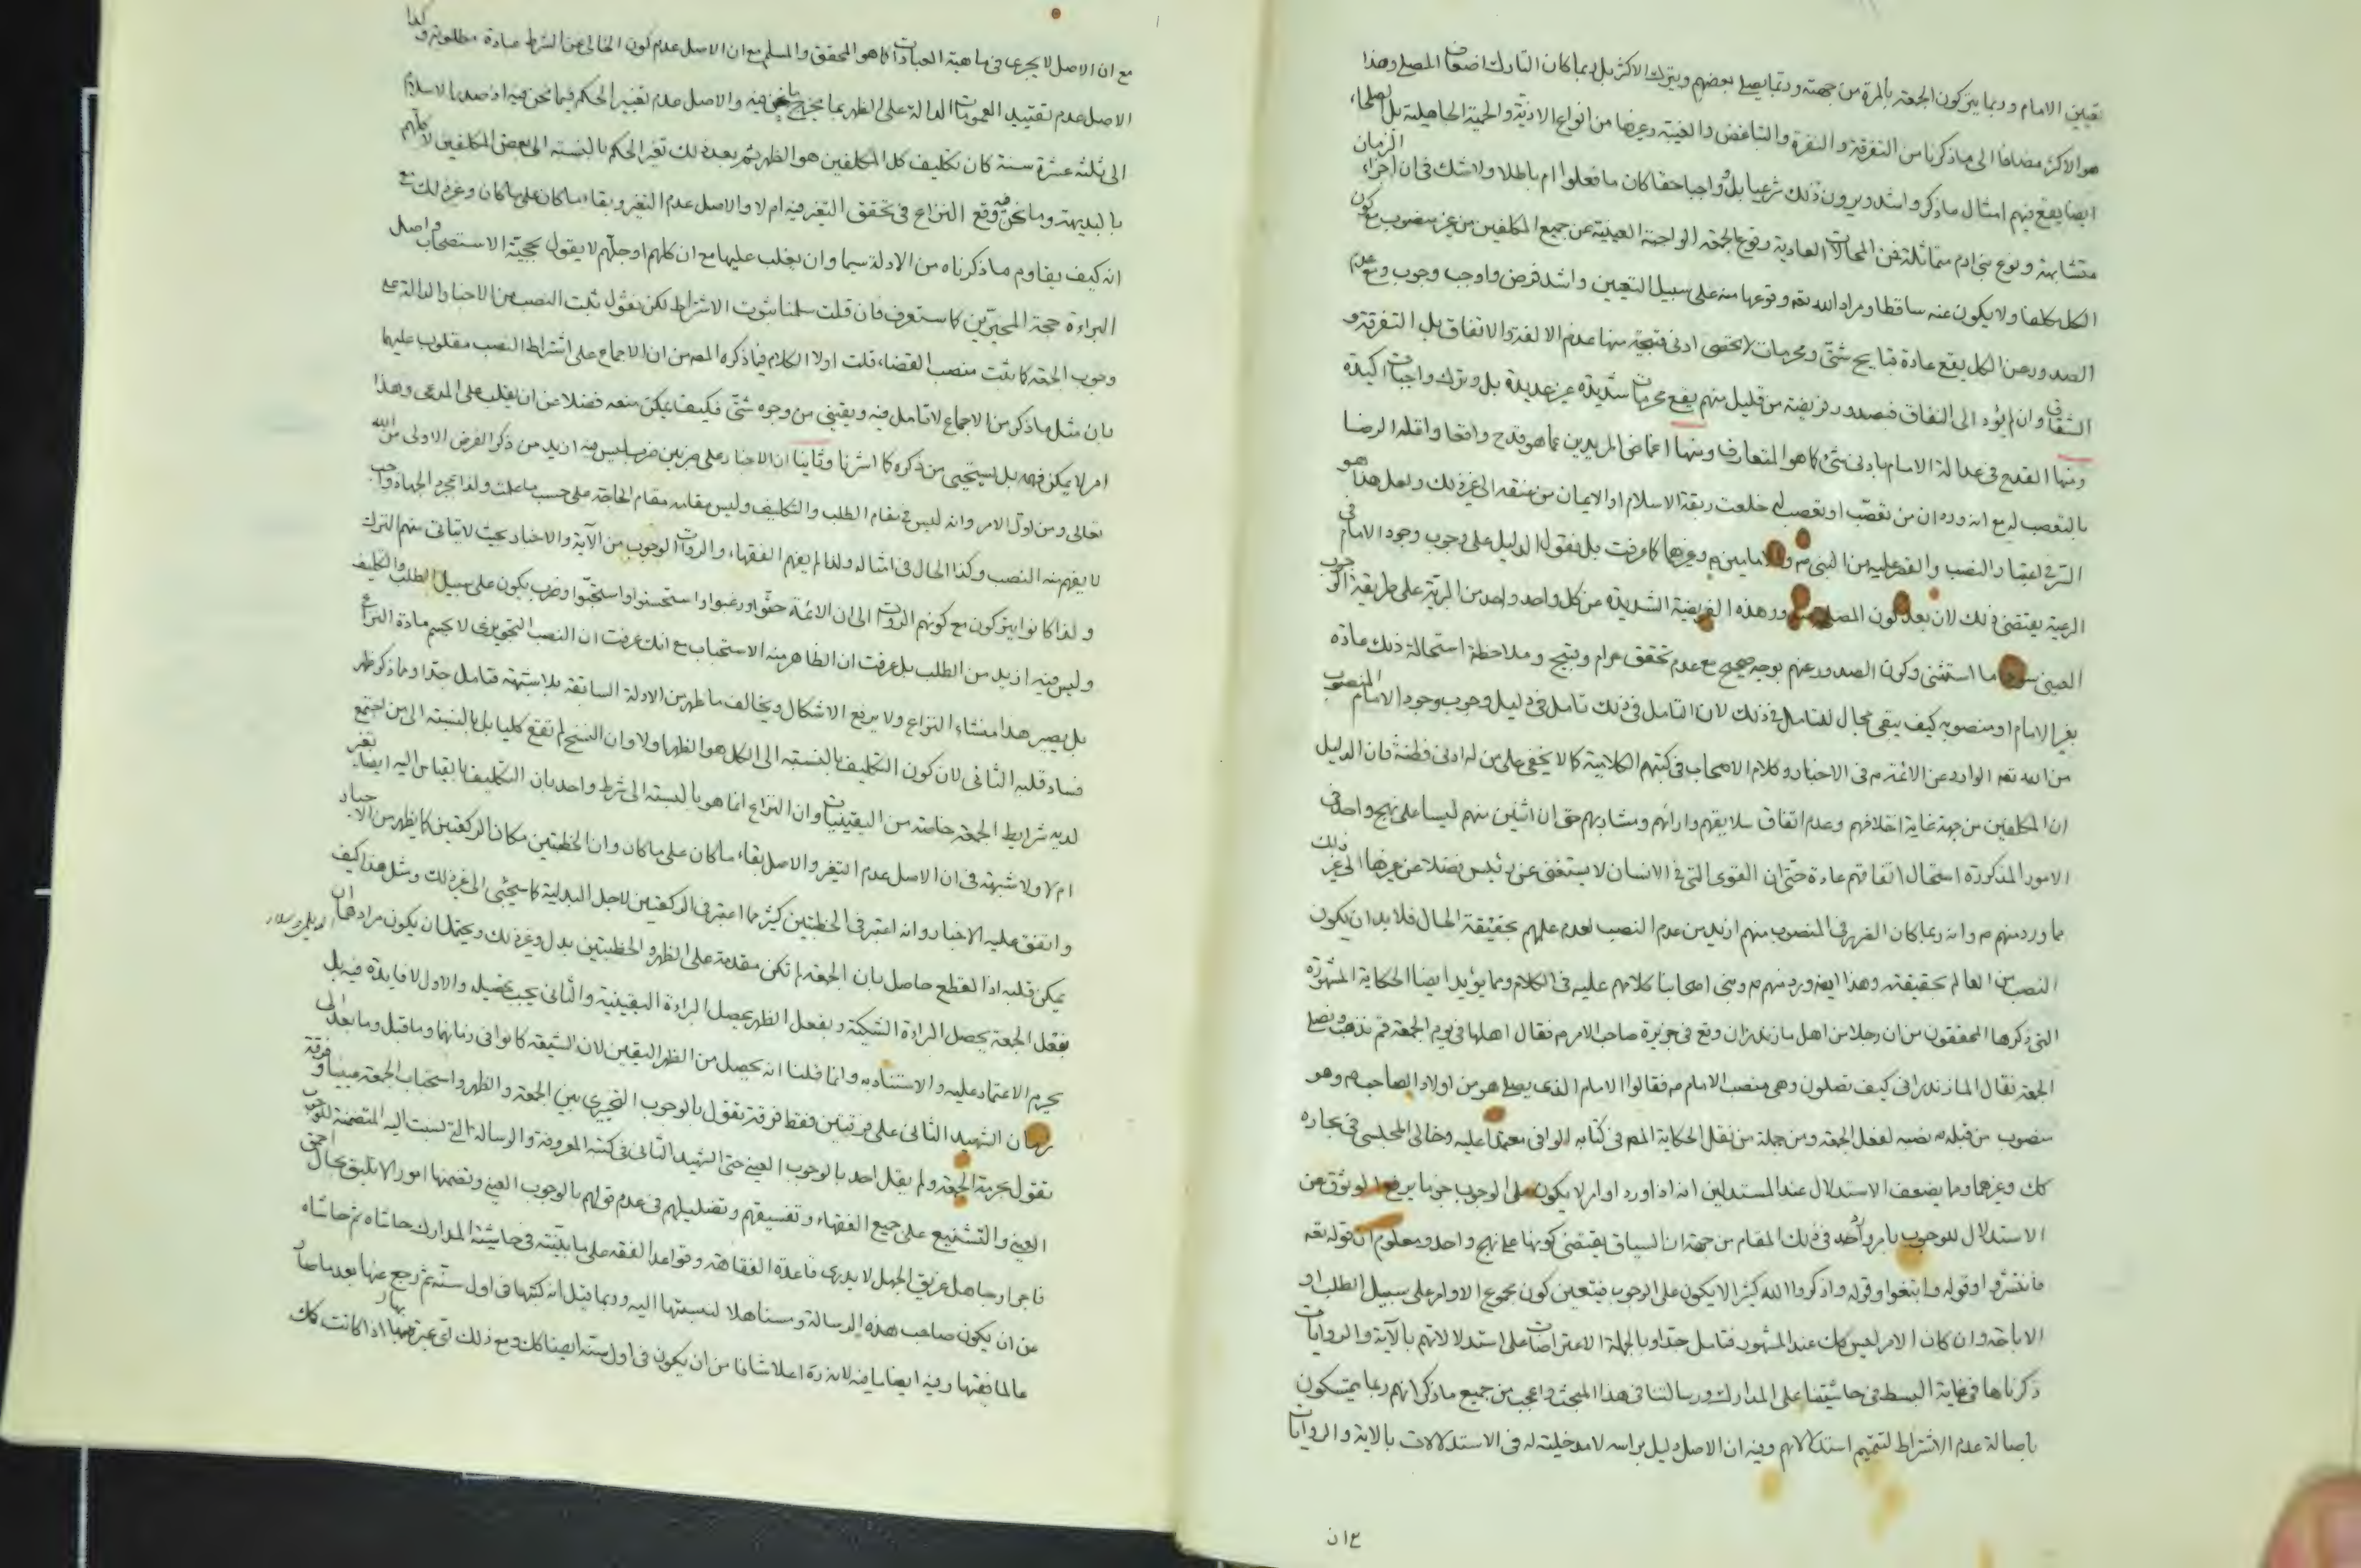 تعيين الامام وربما يتركون الجمعة بالمرة من جهته وربما يصلي بعضهم ويترك الاكثر بل ربما كان التارك اضعاف المصلي وهذا
هو الاكثر مضافا الى ما ذكرنا من التفرقة والنفرة والتباغض والغيبة وغيرها من انواع الاذية والحمية الجاهلية بل صلحاء
ايضا يقع فيهم امثال ما ذكر واشد ويرون ذلك شرعيا بل واجبا حقا كان ما فعلوا ام باطلا ولا شك في ان اجزاء الزمان
متشابهة ونوع بني ادم متماثلة فمن المحالات العادية وقوع الجمعة الواجبة العينية عن جميع المكلفين من غير منصوب مع كون
الكل مكلفا ولا يكون عنه ساقطا ومراد الله تعه وقوعها منه على سبيل التعيين واشد فرض واوجب وجوب ومع عدم
الصدور عن الكل يقع عادة قبايح شتى ومحرمات لا تحصى ادنى قبيحة منها عدم الالفة والاتفاق بل التفرقة و
الشقاق وان لم يؤد الى النفاق فبصدور فريضة من قليل منهم يقع محرمات شديدة غير عديدة بل وترك واجبات اكيدة
ومنها القدح في عدالة الامام بادنى شئ كما هو المتعارف ومنها اغماض المريدين عما هو قدح واقعا واقله الرضا
بالتعصب له مع انه ورد ان من تعصب او تعصب له خلعت ربقة الاسلام او الايمان من عنقه الى غير ذلك ولعل هذا هو
السر في اعتبار النصب والقصر عليه من النبي ص و الامامين م وغيرهما كما عرفت بل نقول الدليل على وجوب وجود الامام في
الرعية يقتضي ذلك لان بعد كون المصلحة صدور هذه الفريضة الشديدة من كل واحد واحد من البرية على طريقة الوجوب
العيني سوى ما استثنى وكون الصدور عنهم بوجه صحيح مع عدم تحقق حرام وقبيح وملاحظة استحالة ذلك عادة
بغير الامام او منصوبه كيف يبقى مجال للتامل في ذلك لان التامل في ذلك تامل في دليل وجوب وجود الامام المنصوب
من الله تعه الوارد عن الائمة م في الاخبار وكلام الاصحاب في كتبهم الكلامية كما لا يخفى على من له ادنى فطنة فان الدليل
ان المكلفين من جهة غاية اختلافهم وعدم اتفاق سلايقهم وارائهم ومشاربهم حتى ان اثنين منهم ليسا على نهج واحد في
الامور المذكورة استحال اتفاقهم عادة حتى ان القوى التي في الانسان لا يستغنى عن رئيس فضلا عن غيرها الى غير ذلك
مما ورد منهم م وانه ربما كان الضرر في المنصوب منهم ازيد من عدم النصب لعدم علمهم بحقيقة الحال فلا بد ان يكون
النصب من العالم بحقيقته وهذا ايضه ورد منهم م وبنى اصحابنا كلامهم عليه في الكلام ومما يؤيد ايضا الحكاية المشهورة
التي ذكرها المحققون من ان رجلا من اهل مازندران وقع في جزيرة صاحب الامر م فقال اهلها في يوم الجمعة قم نذهب ونصلي
الجمعة فقال المازندراني كيف تصلون وهي منصب الامام م فقالوا الامام الذي يصلي هو من اولاد الصاحب م وهو
منصوب من قبله م نصبه لفعل الجمعة ومن جملة من نقل الحكاية المصه في كتابه الوافي معتمدا عليه وخالي المجلسي في بحاره
كك وغيرها ومما يضعف الاستدلال عند المستدلين انه اذا ورد اوامر لا يكون على الوجوب جزما يرفع الوثوق عن
الاستدلال للوجوب بامر واحد في ذلك المقام من جهة ان السياق يقتضي كونها على نهج واحد ومعلوم ان قوله تعه
فانتشروا وقوله وابتغوا وقوله واذكروا الله كثيرا لا يكون على الوجوب فيتعين كون مجموع الاوامر على سبيل الطلب او
الاباحة وان كان الامر ليس كك عند المشهور فتامل جدا وبالجملة الاعتراضات على استدلالاتهم بالآية والروايات
ذكرناها في غاية البسط في حاشيتنا على المدارك ورسالتنا في هذا المبحث واعجب من جميع ما ذكر انهم ربما يتمسكون
باصالة عدم الاشتراط لتتميم استدلالاتهم وفيه ان الاصل دليل براسه لا مدخلية له في الاستدلالات بالاية والروايات
مع ان الاصل لا يجري في ماهية العبادات كما هو المحقق والمسلم مع ان الاصل عدم كون الخالي عن الشرط عبادة مطلوبة وكذا
الاصل عدم تقييد العمومات الدالة على الظهر بما يخرج ما نحن فيه والاصل عدم تغيير الحكم فيما نحن فيه اذ صدر الاسلام
الى ثلثة عشرة سنة كان تكليف كل المكلفين هو الظهر ثم بعد ذلك تغير الحكم بالنسبة الى بعض المكلفين لا كلهم
بالبديهة وما نحن فيه وقع النزاع في تحقق التغير فيه ام لا والاصل عدم التغير وبقاء ما كان على ما كان وغير ذلك مع
انه كيف يقاوم ما ذكرناه من الادلة سيما وان يغلب عليها مع ان كلهم او جلهم لا يقول بحجية الاستصحاب واصل
البراءة حجة المخيرين كما ستعرف فان قلت سلمنا ثبوت الاشتراط لكن نقول ثبت النصب من الاخبار الدالة على
وجوب الجمعة كما ثبت منصب القضاء قلت اولا الكلام فيما ذكره المصه من ان الاجماع على اشتراط النصب مقلوب عليهما
بان مثل ما ذكر من الاجماع لا تامل فيه ويقيني من وجوه شتى فكيف يمكن منعه فضلا عن ان يقلب على المدعى وهذا
امر لا يمكن فهمه بل يستحيي من ذكره كما اشرنا وثانيا ان الاخبار على ضربين ضرب ليس فيه ازيد من ذكر الفرض الاولى من الله
تعالى ومن اول الامر وانه ليس في مقام الطلب والتكليف وليس مقامه مقام الحاجة على حسب ما علمت ولذا بمجرد الجهاد واجب
لا يفهم منه النصب وكذا الحال في امثاله ولذا لم يفهم الفقهاء والروات الوجوب من الآية والاخبار بحيث لا يتاتى منهم الترك
ولذا كانوا يتركون مع كونهم الروات الى ان الائمة حثوا ورغبوا او استحسنوا واستحبوا وضرب يكون على سبيل الطلب والتكليف
وليس فيه ازيد من الطلب بل عرفت ان الظاهر منه الاستحباب مع انك عرفت ان النصب التجويزي لا يحسم مادة النزاع
بل يصير هذا منشاء النزاع ولا يرفع الاشكال ويخالف ما ظهر من الادلة السابقة بلا شبهة فتامل جدا ومما ذكر ظهر
فساد قلبه الثاني لان كون التكليف بالنسبة الى الكل هو الظهر اولا وان النسخ لم تقع كليا بل بالنسبة الى من اجتمع
لديه شرايط الجمعة خاصة من اليقينيات وان النزاع انما هو بالنسبة الى شرط واحد بان التكليف بالقياس اليه ايضا تغير
ام لا ولا شبهة في ان الاصل عدم التغير والاصل بقاء ما كان على ما كان وان الخطبتين مكان الركعتين كما يظهر من الاخبار
واتفق عليه الاخبار وانه اعتبر في الخطبتين كثير مما اعتبر في الركعتين لاجل البدلية كما سيجئ الى غير ذلك ومثل هذا كيف
يمكن قلبه اذ القطع حاصل بان الجمعة لم تكن مقدمة على الظهر والخطبتين بدل وغير ذلك ويحتمل ان يكون مرادهما ان
بفعل الجمعة يحصل البراءة الشكية وبفعل الظهر يحصل البراءة اليقينية والثاني يجب تحصيله والاول لا فايدة فيه بل
يحرم الاعتماد عليه والاستناد به وانما قلنا انه يحصل من الظهر اليقين لان الشيعة كانوا في زمانهما وما قبل وما بعد الى
زمان الشهيد الثاني على فرقتين فقط فرقة تقول بالوجوب التخييري بين الجمعة والظهر واستحباب الجمعة عينيا وفرقة
تقول بحرمة الجمعة ولم يقل احد بالوجوب العيني حتى الشهيد الثاني في كتبه المعروفة والرسالة التي نسبت اليه المتضمنة للوجوب
العيني والتشنيع على جميع الفقهاء وتفسيقهم وتضليلهم في عدم قولهم بالوجوب العيني وتضمنها امورا لا تليق بحال احمق
فاجر او جاهل غريق الجهل لا يدري قاعدة الفقاهة وقواعد الفقه على ما بينته في حاشية المدارك حاشاه ثم حاشاه
من ان يكون صاحب هذه الرسالة ومستاهلا لنسبتها اليه وربما قيل انه كتبها في اول سنه ثم رجع عنها بعد ما صار
عالما فقيها وفيه ايضا ما فيه لانه ره اعلا شانا من ان يكون في اول سنه ايضا كك ومع ذلك اي عبرة بها اذا كانت كك